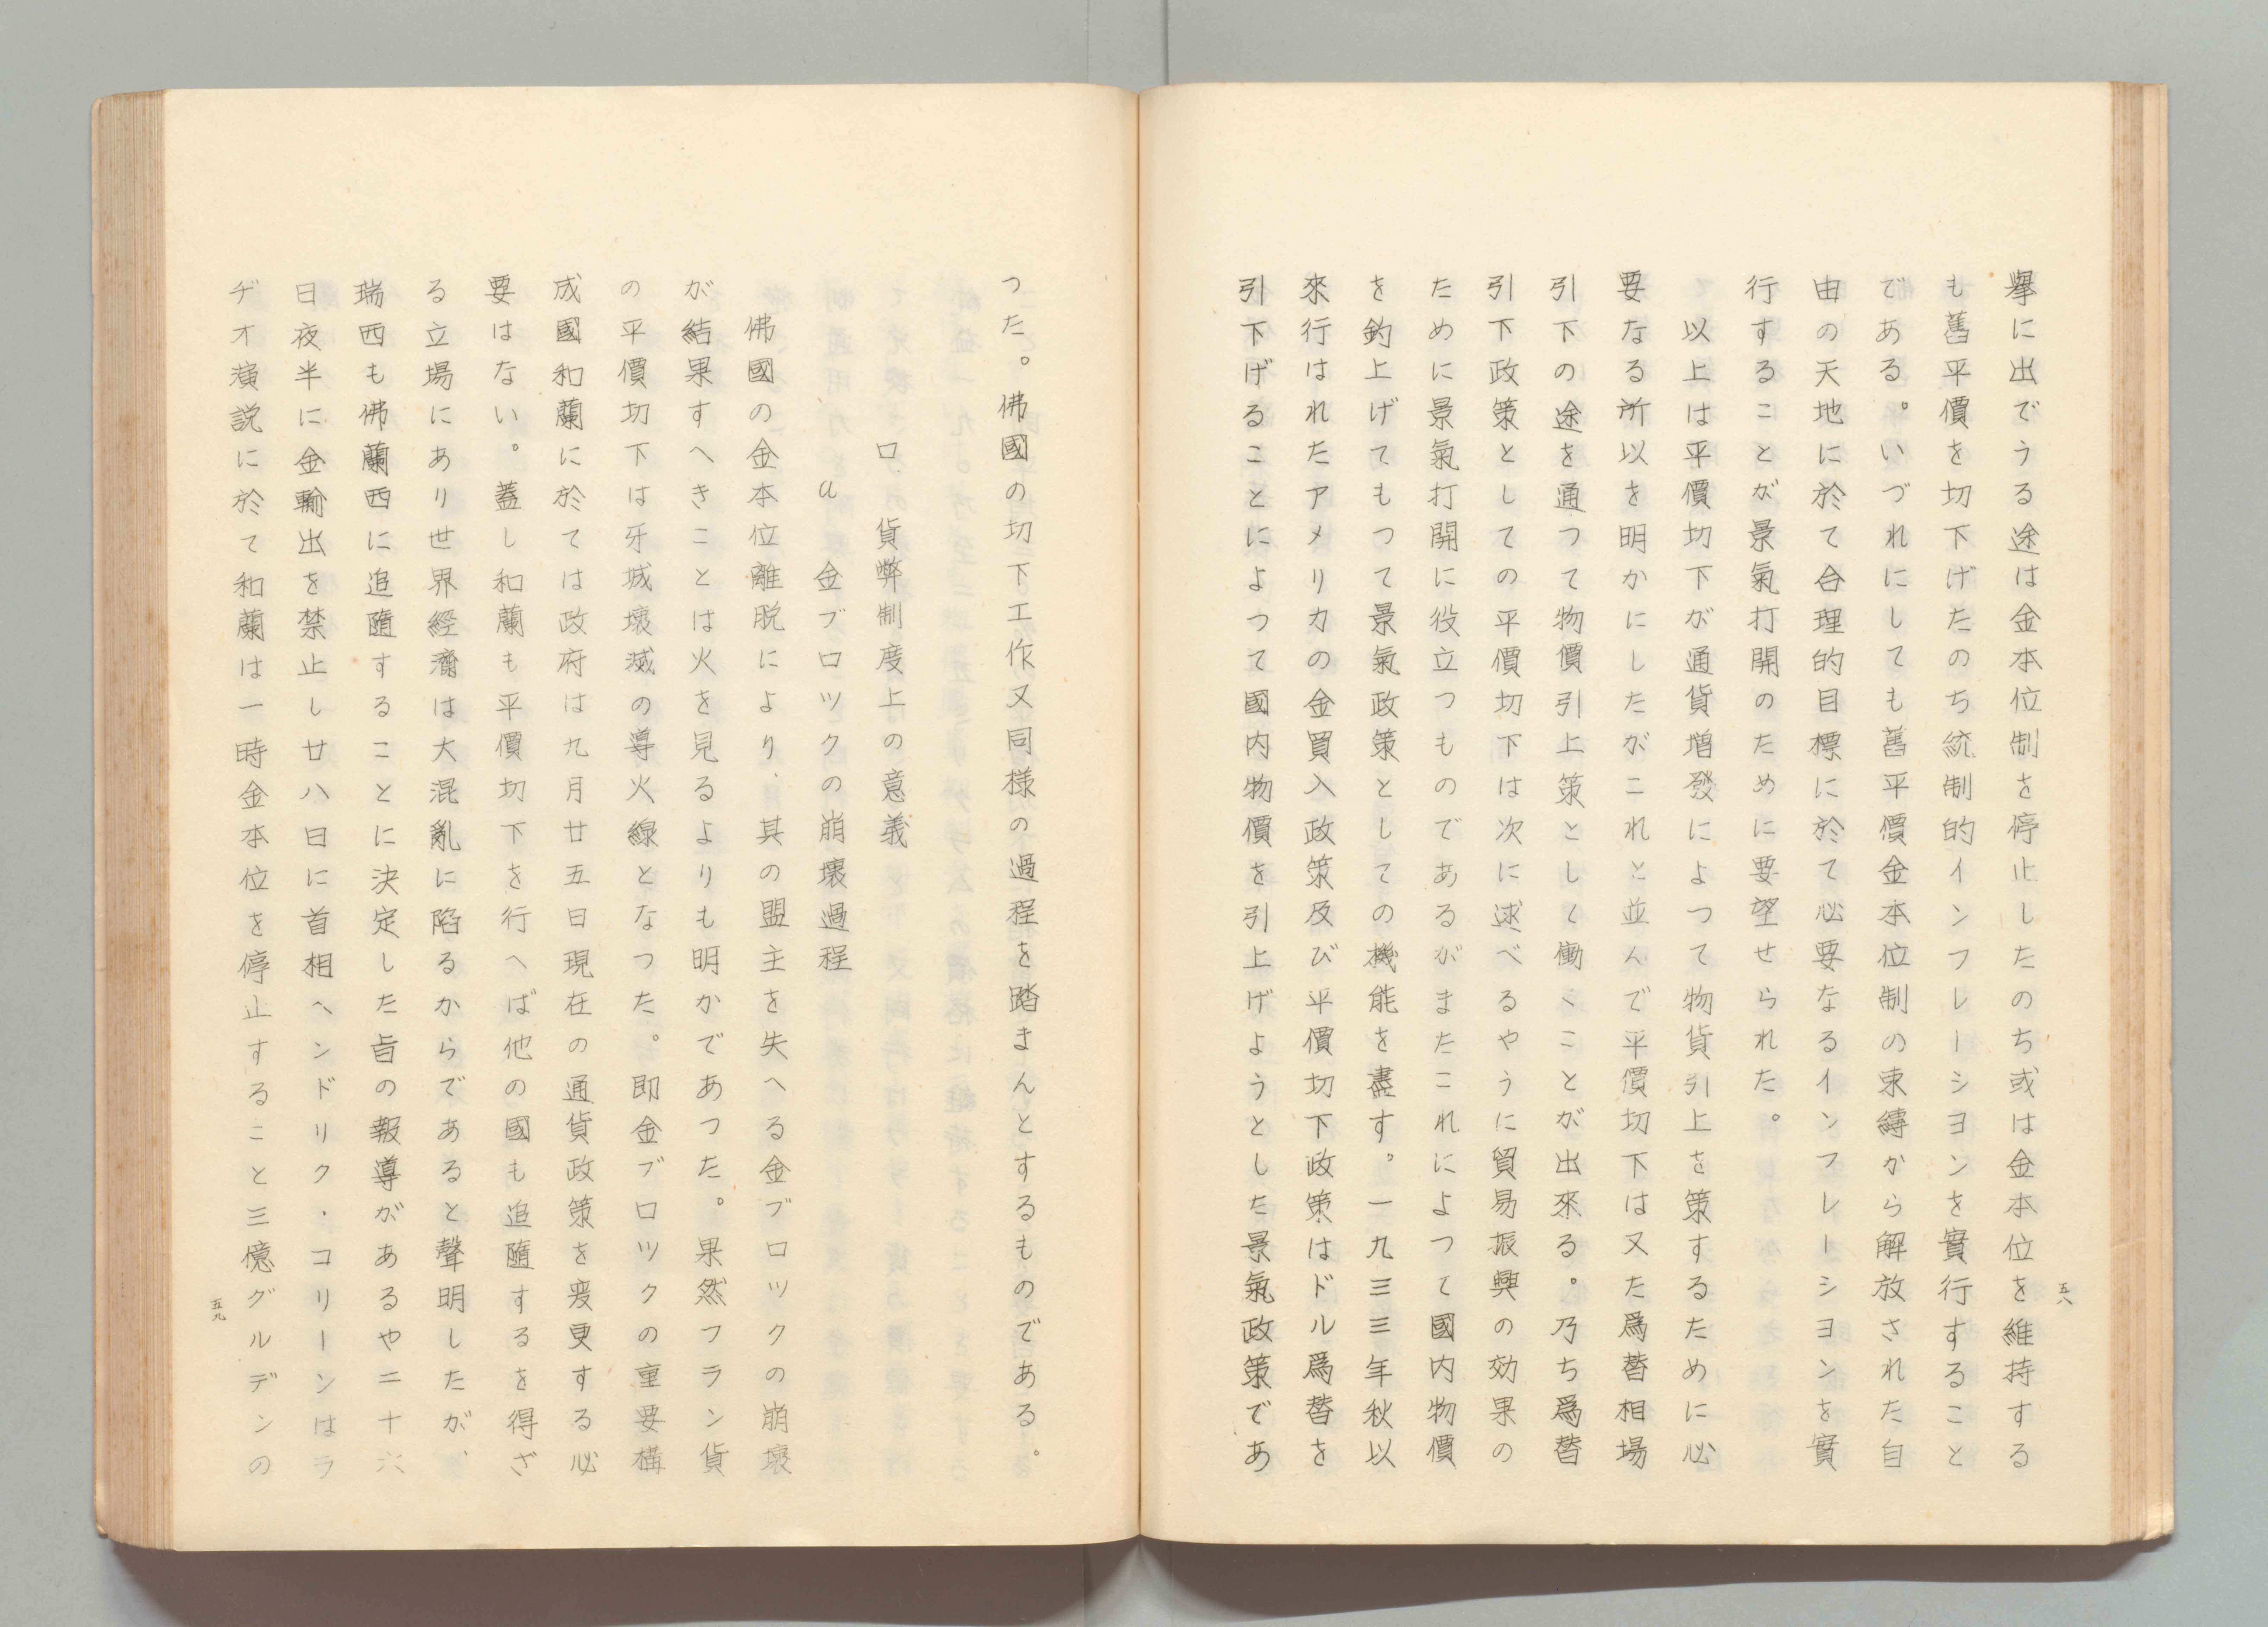 五八
擧に出でうる途は金本位制を停止したのち或は金本位を維持する
も舊平價を切下げたのち統制的インフレーシヨンを實行すること
である。いづれにしても舊平價金本位制の束縛から解放された自
由の天地に於て合理的目標に於て必要なるインフレーシヨンを實
行することが景氣打開のために要望せられた。
以上は平價切下が通貨増發によつて物貨引上を策するために必
要なる所以を明かにしたがこれと並んで平價切下は又た爲替相場
引下の途を通つて物價引上策として働くことが出來る。乃ち爲替
引下政策としての平價切下は次に逑べるやうに貿易振興の効果の
ために景氣打開に役立つものであるがまたこれによつて國内物價
を釣上げてもつて景氣政策としての機能を盡す。一九三三年秋以
來行はれたアメリカの金買入政策及び平價切下政策はドル爲替を
引下げることによつて國内物價を引上げようとした景氣政策であ
つた。佛國の切下工作又同様の過程を踏まんとするものである。
ロ、貨弊制度上の意義
a 金ブロツクの崩壞過程
佛國の金本位離脱により、其の盟主を失へる金ブロツクの崩壞
が結果すへきことは火を見るよりも明かであつた。果然フラン貨
の平價切下は牙城壞滅の導火線となつた。即金ブロツクの重要構
成國和蘭に於ては政府は九月廿五日現在の通貨政策を変更する必
要はない。蓋し和蘭も平價切下を行へば他の國も追隨するを得ざ
る立場にあり世界經濟は大混亂に陷るからであると聲明したが、
瑞西も佛蘭西に追隨することに決定した旨の報導があるや二十六
日夜半に金輸出を禁止し廿八日に首相ヘンドリク・コリーンはラ
ヂオ演説に於て和蘭は一時金本位を停止すること三億グルデンの
五九